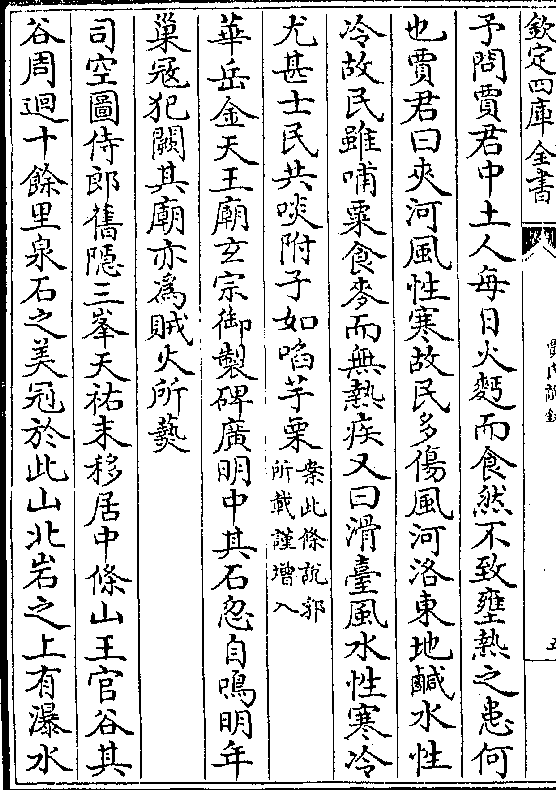 欽定四庫全書
予問賈君中土人每日火麫而食然不致壅熱之患何
也賈君曰夾河風性寒故民多傷風河洛東地鹹水性
冷故民雖哺粟食麥而無熱疾又曰滑臺風水性寒冷
尤甚士民共啖附子如啗芋栗案此條説郛
所載謹增入
華岳金天王廟玄宗御製碑廣明中其石忽自鳴明年
巢冦犯闕其廟亦為賊火所爇
司空圖侍郎舊隠三峯天祐末移居中條山王官谷其
谷周迴十餘里泉石之美冠於此山北岩之上有瀑水